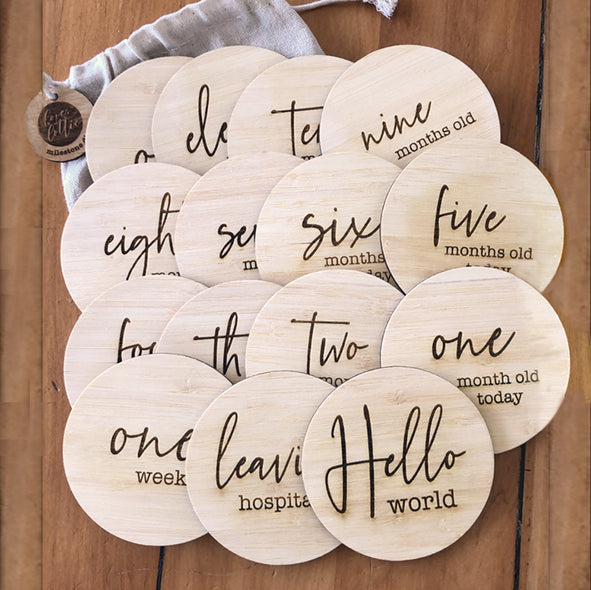 o
ele
te
nine
months old
love
lottie
milestone
eight
mo
se
m
six
months
day
five
months old
today
fo
th
two
mo
one
month old
today
one
week
leavi
hospita
Hello
world